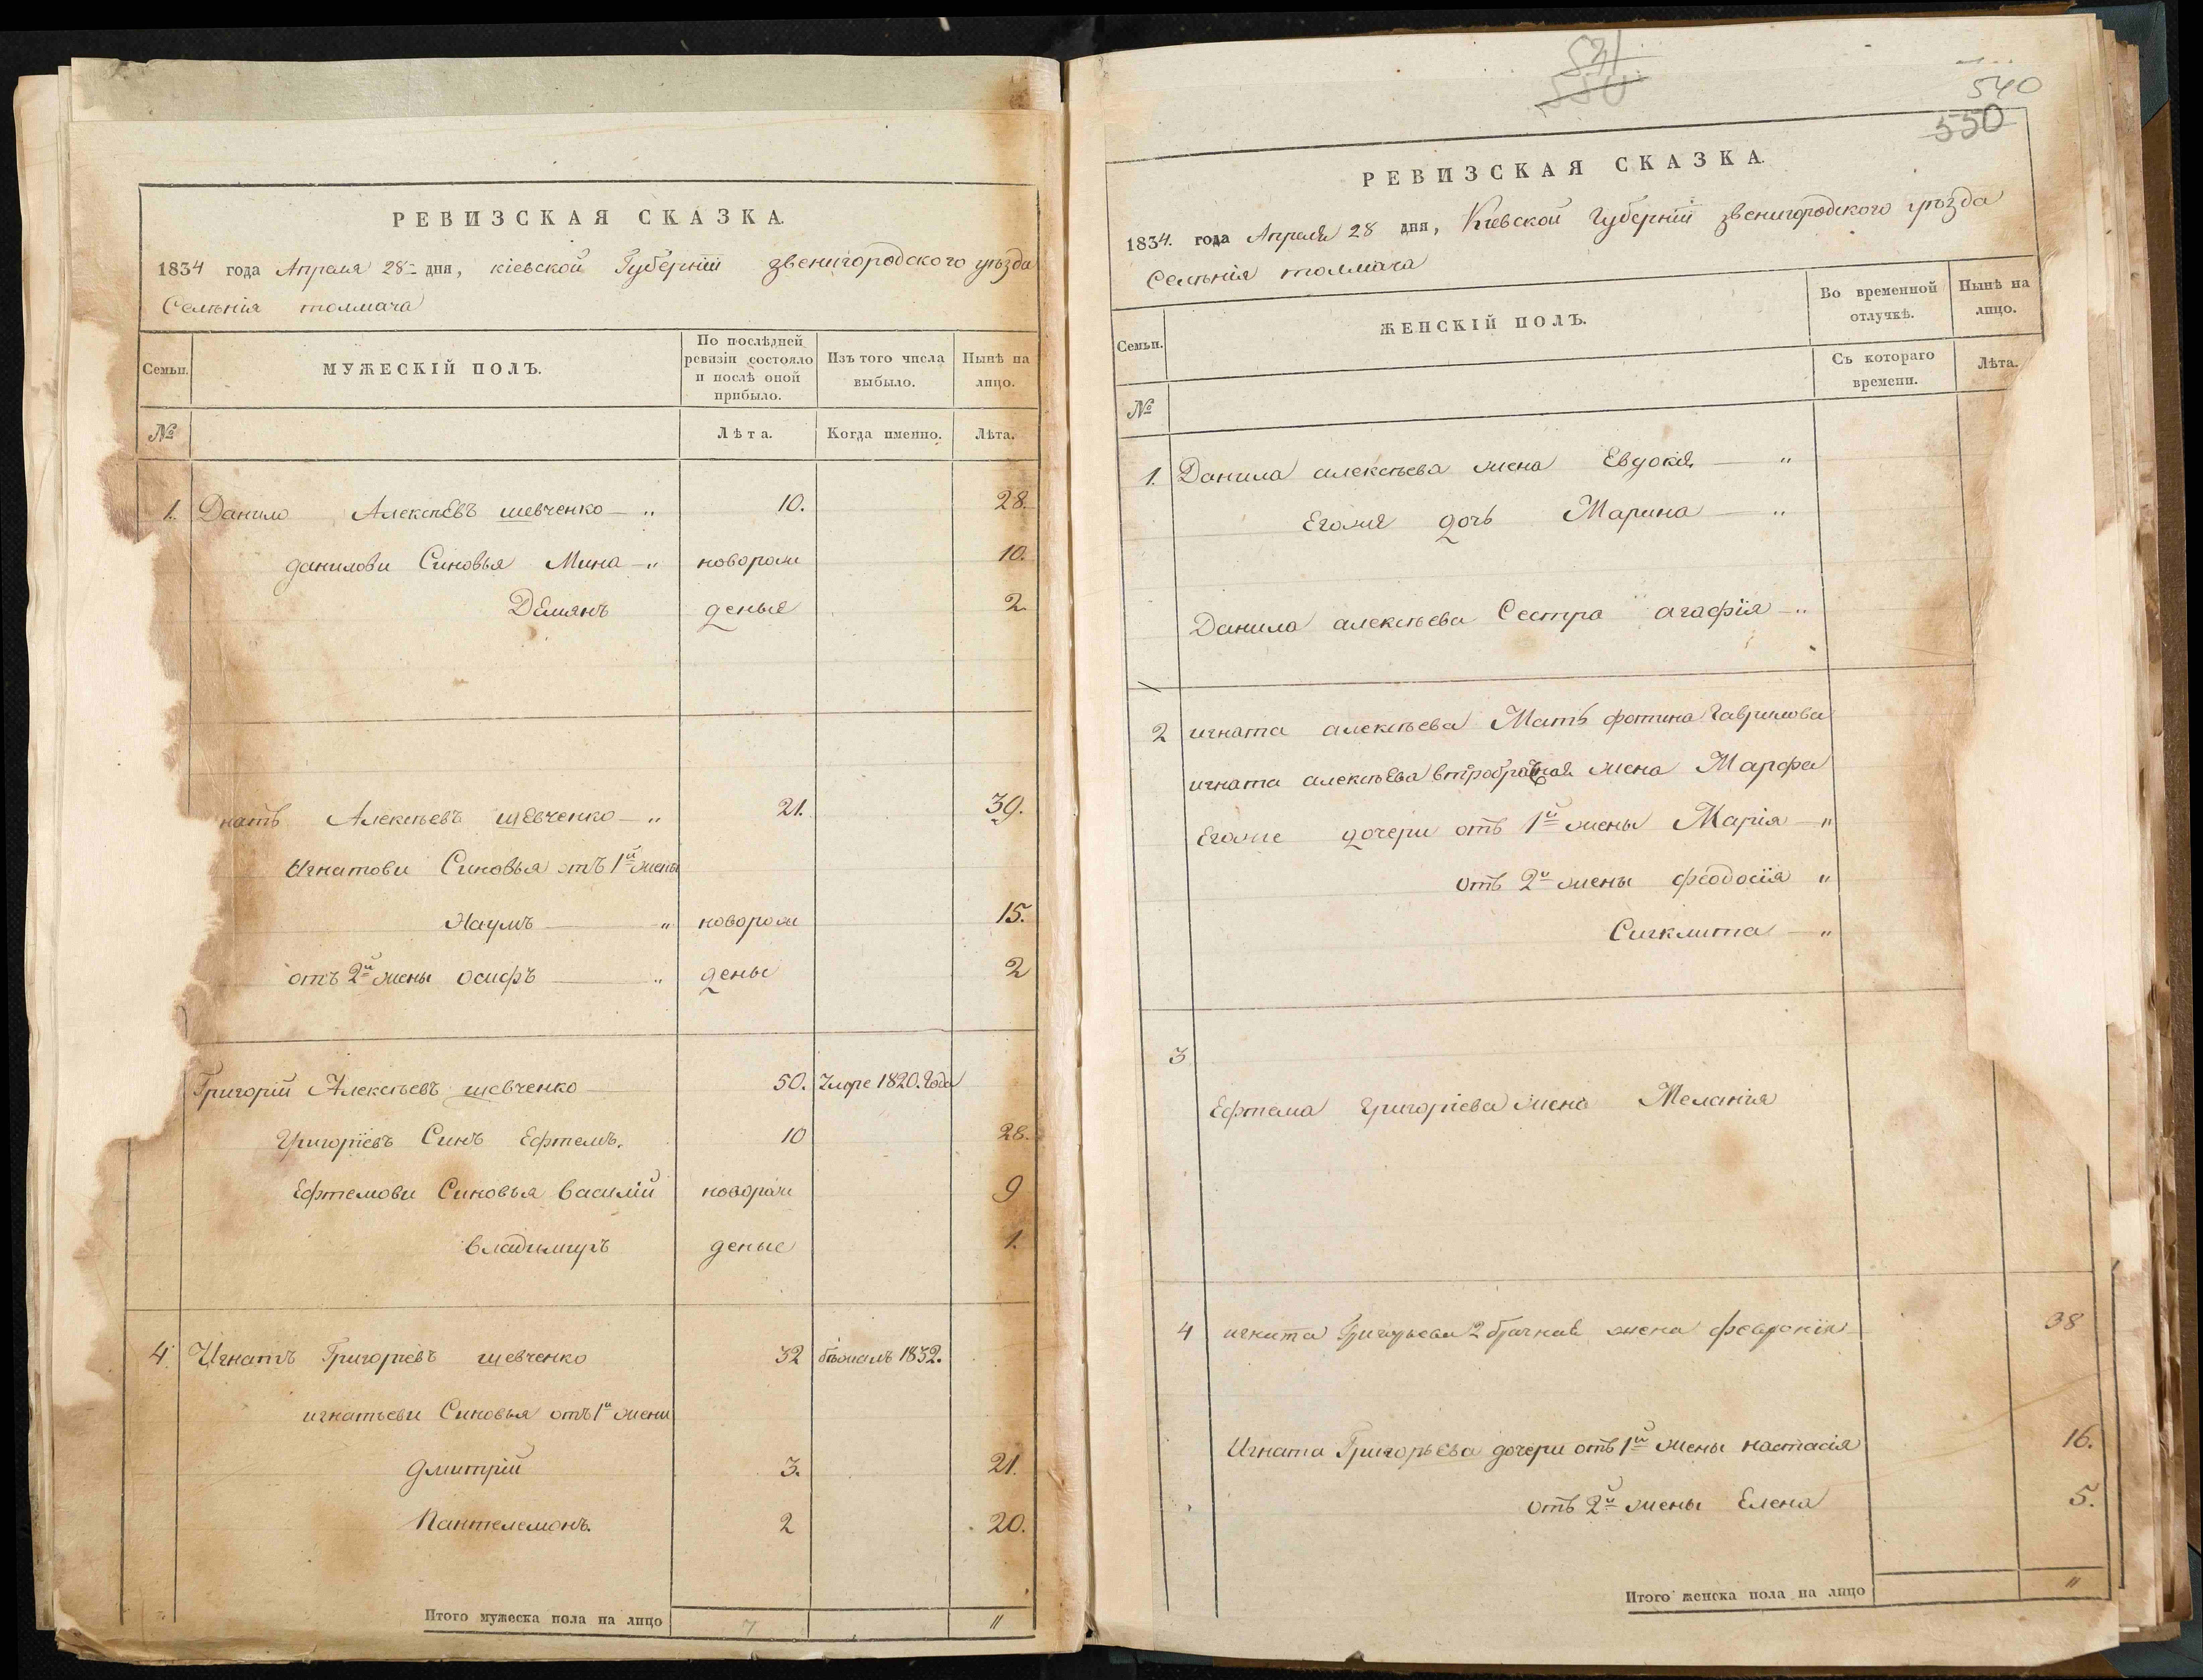 РЕВИЗСКАЯ СКАЗКА.
1834 года Апреля 28 дня, кіевской Губерніи звенигородского уѣзда
Селѣнія толмача
Семьи.
МУЖЕСКІЙ ПОЛЪ.
По послѣдней ревизіи состояло и послѣ оной прибыло.
Изъ того числа выбыло.
Нынѣ на лицо.
№
Лѣта.
Когда именно.
Лѣта.
1. Данило АлексѣЕвъ шевченко — „ 10. 28.
данилови Синовья Мина — „ новорож 10.
ДЕмянъ деные 2.
натъ Алексѣевъ шЕвченко — „ 21. 39.
Игнатови Синовья отъ 1й жены
Наумъ — „ новорож 15.
отъ 2й жены осифъ — „ дены 2
Григорій Алексѣевъ шевченко 50. Умре 1820. Года
Григоріевъ Синъ Ефтемъ. 10 28.
Ефтемови Синовья василій новорож 9
владимиръ деные 1.
4. Игнатъ Григоріевъ шевченко 32 бѣжалъ 1832.
игнатьеви Синовья отъ 1й жени
дмитрій 3. 21.
Пантелемонъ. 2 20.
Итого мужеска пола на лицо 7 „
531
550
540
550
РЕВИЗСКАЯ СКАЗКА.
1834. года Апреля 28 дня, Кіевской Губерніи звенигородского уѣзда
Селѣнія толмача
Семьи.
ЖЕНСКІЙ ПОЛЪ.
Во временной отлучкѣ.
Нынѣ на лицо.
№
Съ котораго времени.
Лѣта.
1. Данила алексѣева жена Евдокія — „
Егоже дочь Марина — „
Данила алексѣева Сестра агафія — „
2 игната алексѣева Мать фотина Гаврилова
игната алексѣЕва втробрачная жена Марфа
Егоже дочери отъ 1й жены Марія — „
отъ 2й жены феодосія „
Сигклита — „
3
Ефтема Григоріева жена Меланія
4 игната Григорьева 2 брачная жена феврония 38
Игната ГригорьЕва дочери отъ 1й жены настасія 16.
отъ 2й жены Елена 5.
Итого женска пола на лицо „